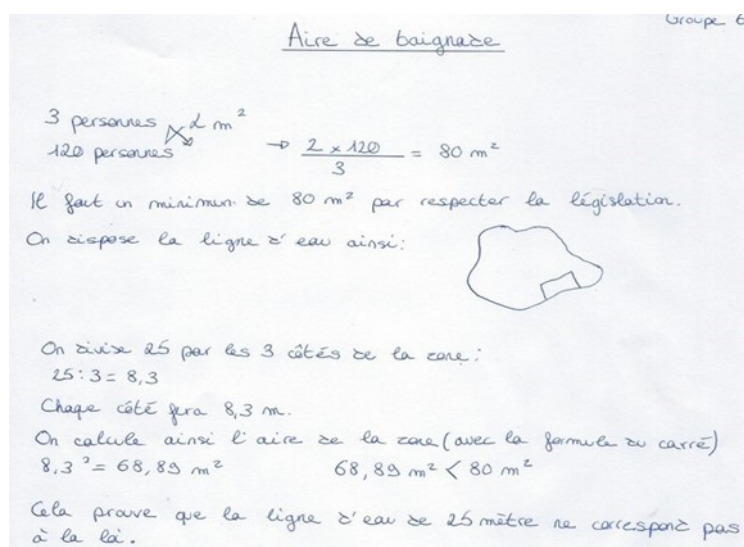 Groupe 6
Aire de baignade
3 personnes 2 m²
120 personnes → 2 x 120 / 3 = 80 m²
Il faut un minimun de 80 m² par respecter la législation.
On dispose la ligne d'eau ainsi:
On divise 25 par les 3 côtés de la zone:
25:3 = 8,3
Chaqe côté fera 8,3 m.
On calcule ainsi l'aire de la zone (avec la formule du carré)
8,3² = 68,89 m² 68,89 m² < 80 m²
Cela prouve que la ligne d'eau de 25 mètre ne correspond pas
à la loi.